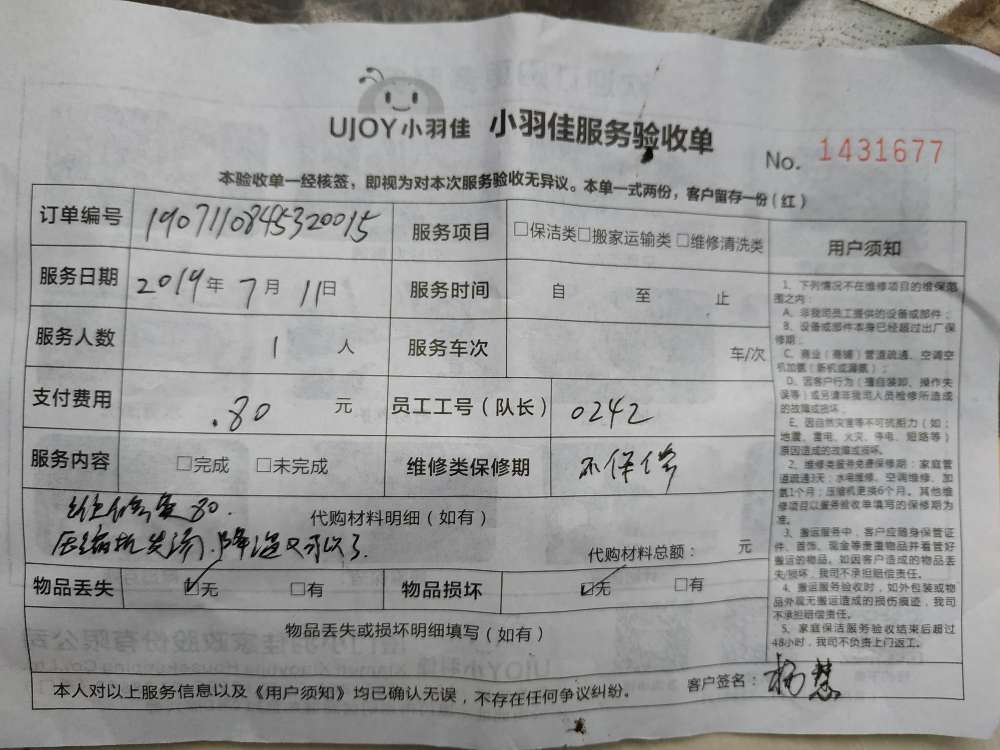 UJOY小羽佳 小羽佳服务验收单
No. 1431677
本验收单一经核签，即视为对本次服务验收无异议。本单一式两份，客户留存一份（红）
订单编号 1907110845320015 服务项目 □保洁类□搬家运输类 □维修清洗类
服务日期 2019年 7月 11日 服务时间 自 至 止
服务人数 1 人 服务车次 车/次
支付费用 .80 元 员工工号（队长） 0242
服务内容 □完成 □未完成 维修类保修期 不保修
维修费80.
代购材料明细（如有）
压缩机 降温又可以了.
代购材料总额： 元
物品丢失 ☑无 □有 物品损坏 ☑无 □有
物品丢失或损坏明细填写（如有）
本人对以上服务信息以及《用户须知》均已确认无误，不存在任何争议纠纷。
客户签名：杨慧
用户须知
1、下列情况不在维修项目的维保范
围之内：
A、非我司员工提供的设备或部件；
B、设备或部件本身已经超过出厂保
修期；
C、商业（商铺）管道疏通、空调空
机加氨（新机或漏氨）；
D、因客户行为（擅自装卸、操作失
误等）或另请非我司人员检修所造成
的故障或损坏；
E、因自然灾害等不可抗拒力（如：
地震、雷电、火灾、停电、短路等）
原因造成的故障或损坏。
2、维修类服务免费保修期：家庭管
道疏通3天；水电维修、空调维修、加
氨1个月；压缩机更换6个月。其他维
修项目以服务验收单填写的保修期为
准。
3、搬运服务中，客户应随身保管证
件、首饰、现金等贵重物品并看管好
搬运的物品。如因客户造成的物品丢
失/损坏，我司不承担赔偿责任。
4、搬运服务验收时，如外包装或物
品外观无搬运造成的损伤痕迹，我司
不承担赔偿责任。
5、家庭保洁服务验收结束后超过
48小时，我司不负责上门返工。